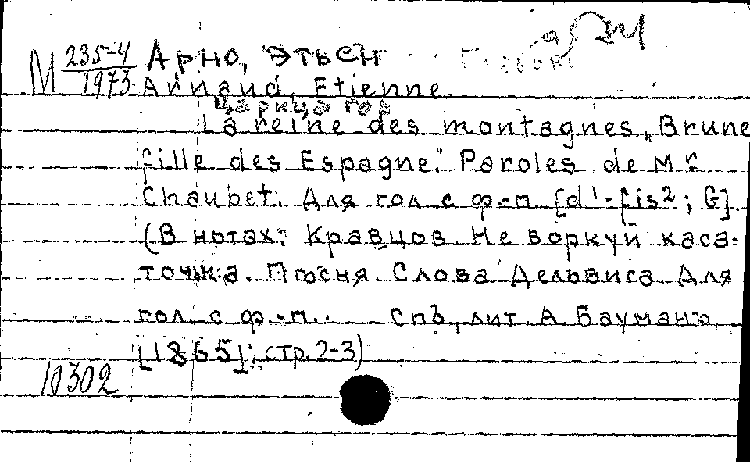 М 235-4/1973 Арно, Этьен
Arnaud, Etienne
La reine des montagnes „Brune
fille des Espagne". Paroles de Mr
Chaubet. Для гол. с ф-п. [d¹-fis²; G]
(В нотах: Кравцов. Не воркуй каса-
точка. Пѣсня. Слова Дельвига. Для
гол. с ф.-п. Спб, лит. А. Бауманъ
[1865]; стр. 2-3)
10302